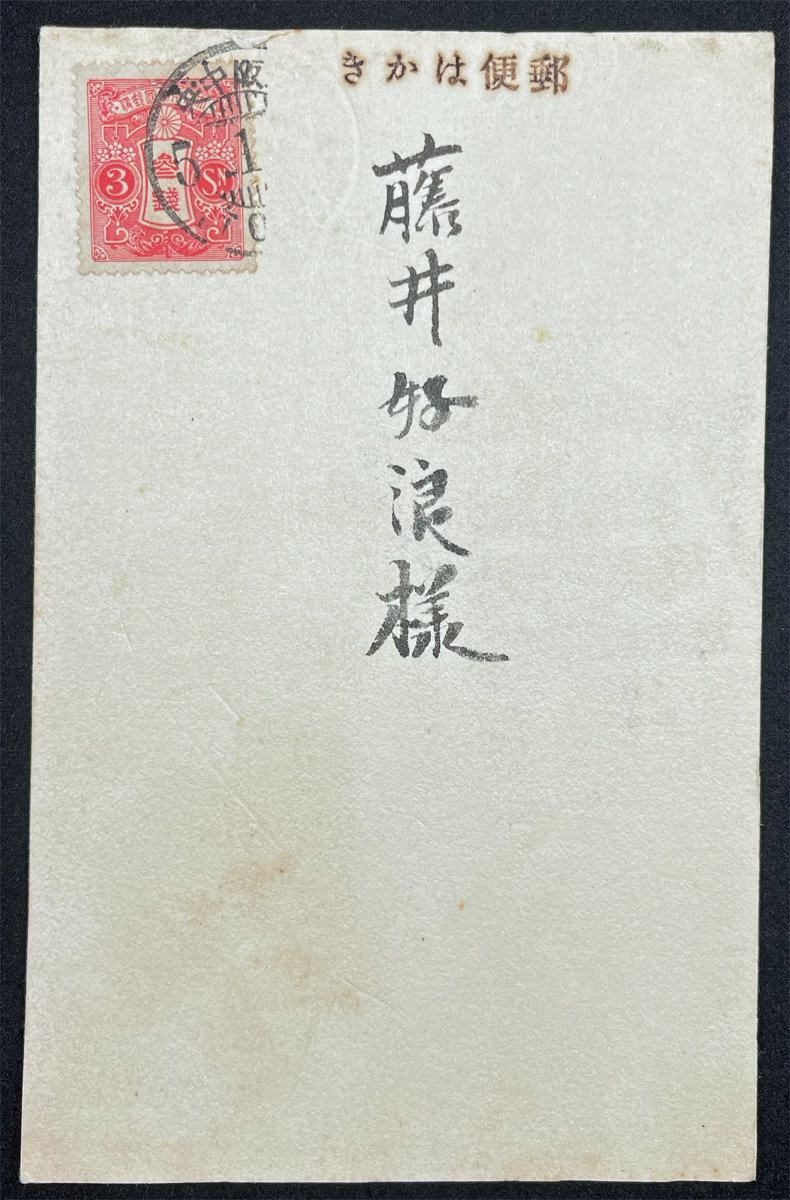 郵便はかき
藤井好浪様
3
参銭
SN
5.1